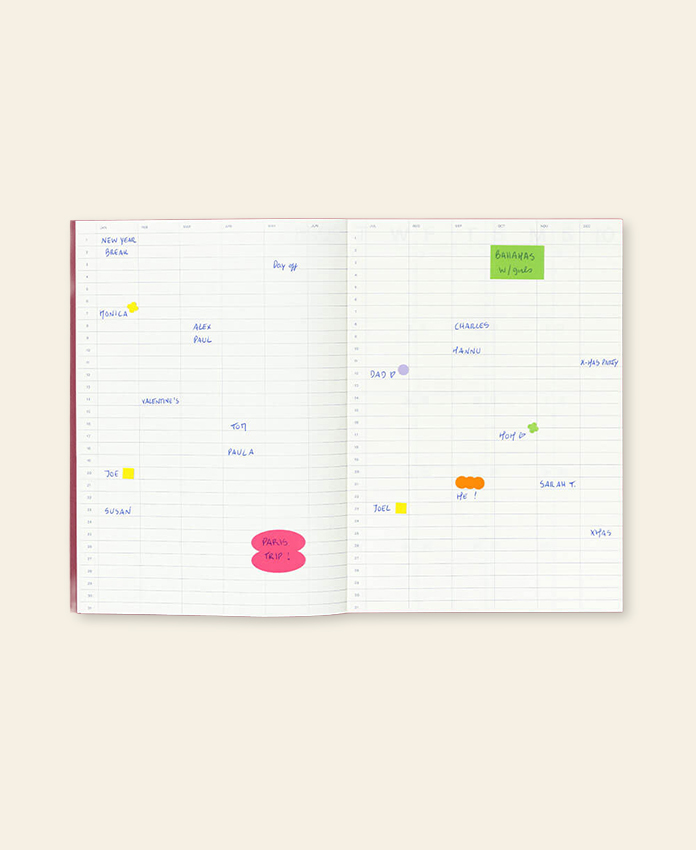 JAN FEB MAR APR MAY JUN
NEW YEAR
BREAK
Day off
MONICA
ALEX
PAUL
VALENTINE'S
TOM
PAULA
JOE
SUSAN
PARIS
TRIP !
JUL AUG SEP OCT NOV DEC
BAHAMAS
w/girls
CHARLES
MANNU
X-MAS PARTY
DAD
MOM
ME !
SARAH T.
JOEL
XMAS